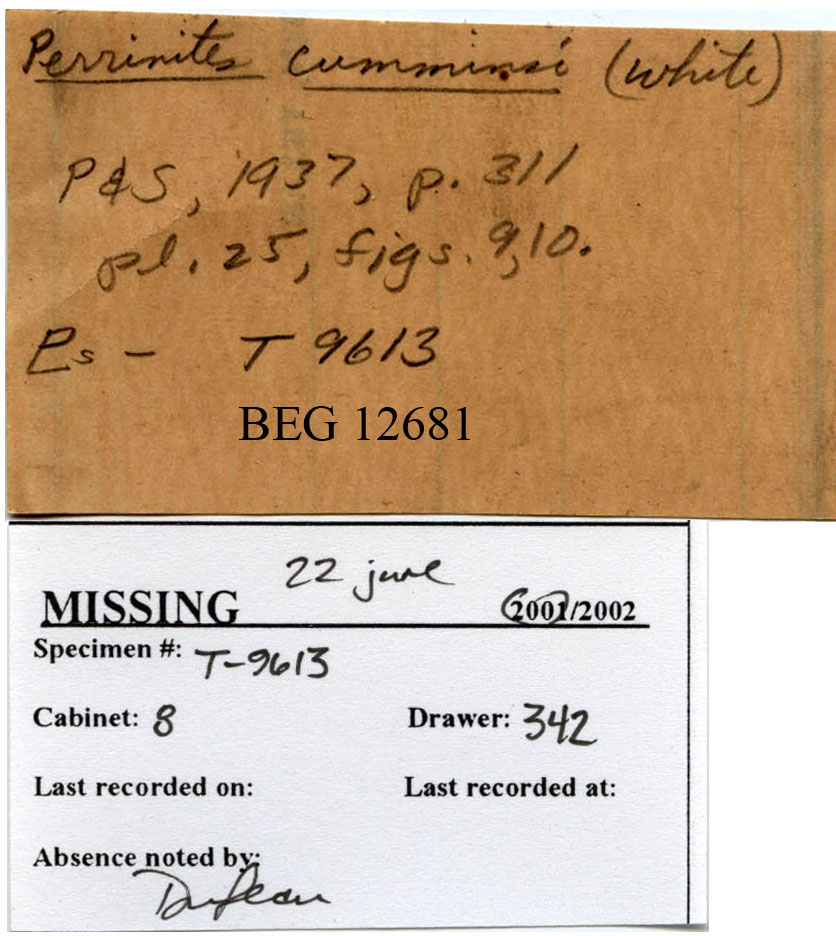 Perrinites cumminsi (White)
P&S, 1937, p. 311
pl. 25, figs. 9,10.
Ps - T 9613
BEG 12681
22 june
MISSING 2001/2002
Specimen #: T-9613
Cabinet: 8 Drawer: 342
Last recorded on: Last recorded at:
Absence noted by: